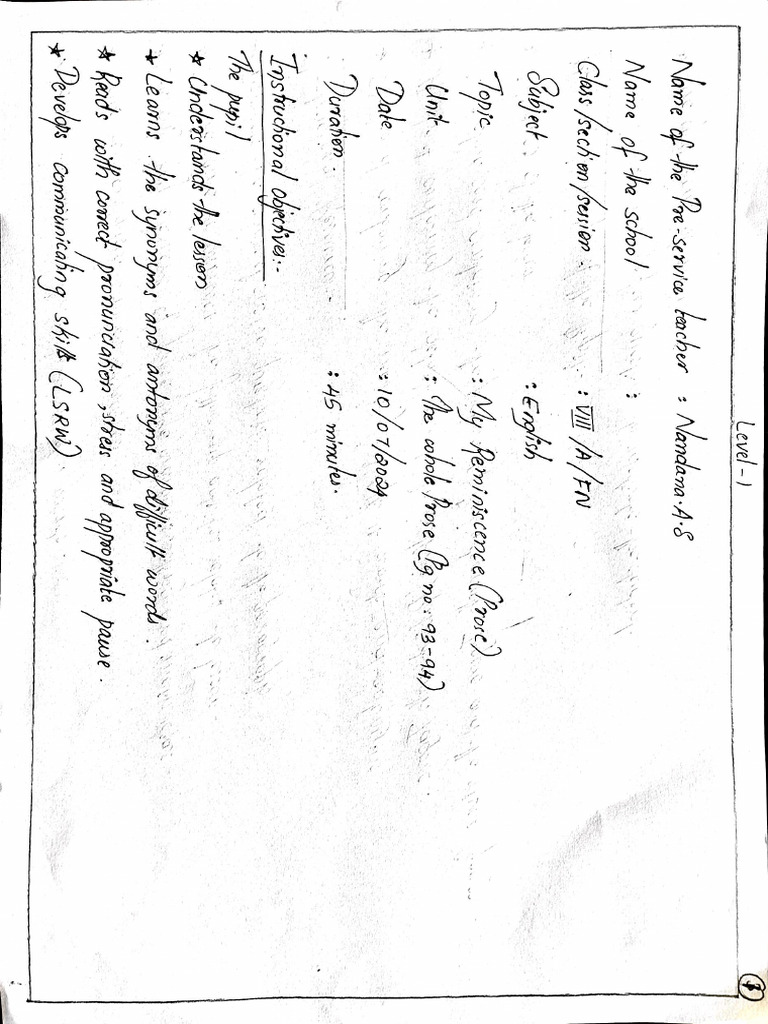 Level-1
Name of the Pre-service teacher : Nandana.A.S
Name of the school :
Class/section/session : VIII/A/FN
Subject : English
Topic : My Reminiscence (Prose)
Unit : The whole Prose (Pg no: 93-94)
Date : 10/07/2024
Duration : 45 minutes.
Instructional Objectives:-
The pupil
* Understands the lesson
* Learns the synonyms and antonyms of difficult words.
* Reads with correct pronunciation, stress and appropriate pause.
* Develops communicating skills (LSRW).